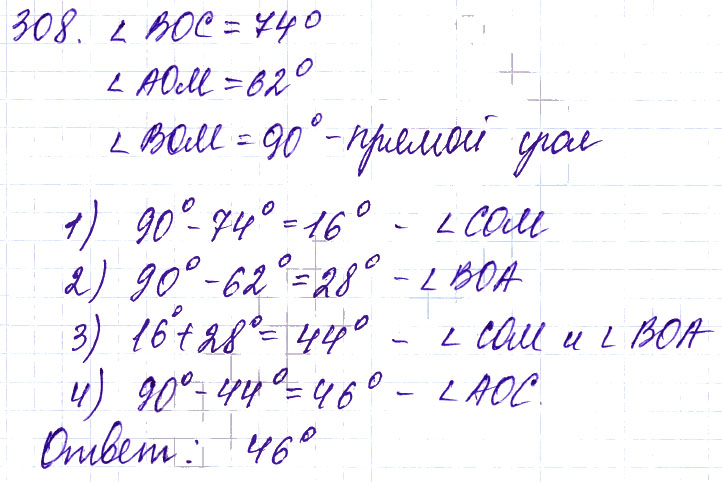 308. ∠ BOC = 74°
∠ AOM = 62°
∠ BOM = 90° - прямой угол
1) 90° - 74° = 16° - ∠ COM
2) 90° - 62° = 28° - ∠ BOA
3) 16° + 28° = 44° - ∠ COM и ∠ BOA
4) 90° - 44° = 46° - ∠ AOC.
Ответ: 46°